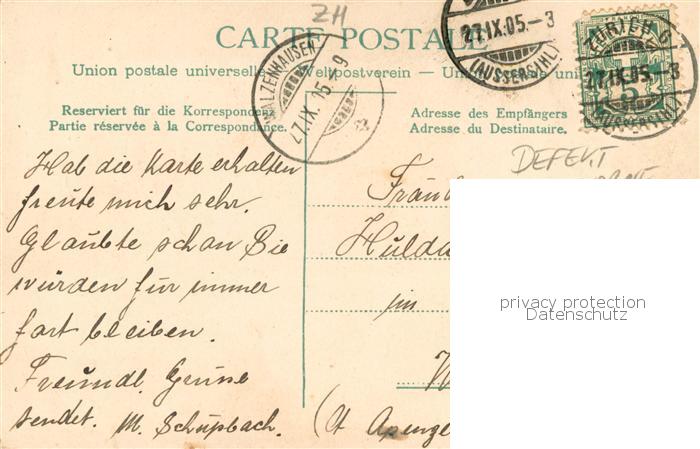 ZH
CARTE POSTALE
Union postale universelle Weltpostverein
WALZENHAUSEN
27.IX.05-9
27.IX.05.-3
(AUSSERSIHL)
ZÜRICH 6
27.IX.05.-3
(AUSSERSIHL)
5
Reserviert für die Korrespondenz
Partie réservée à la Correspondance.
Adresse des Empfängers
Adresse du Destinataire.
DEFEKT
Hab die Karte erhalten
freute mich sehr.
Glaubte schon Sie
würden für immer
fort bleiben.
Freundl. Grüsse
sendet. M. Schüpbach.
Fräul
Hulda
im
W
(Ct Apenze
privacy protection
Datenschutz